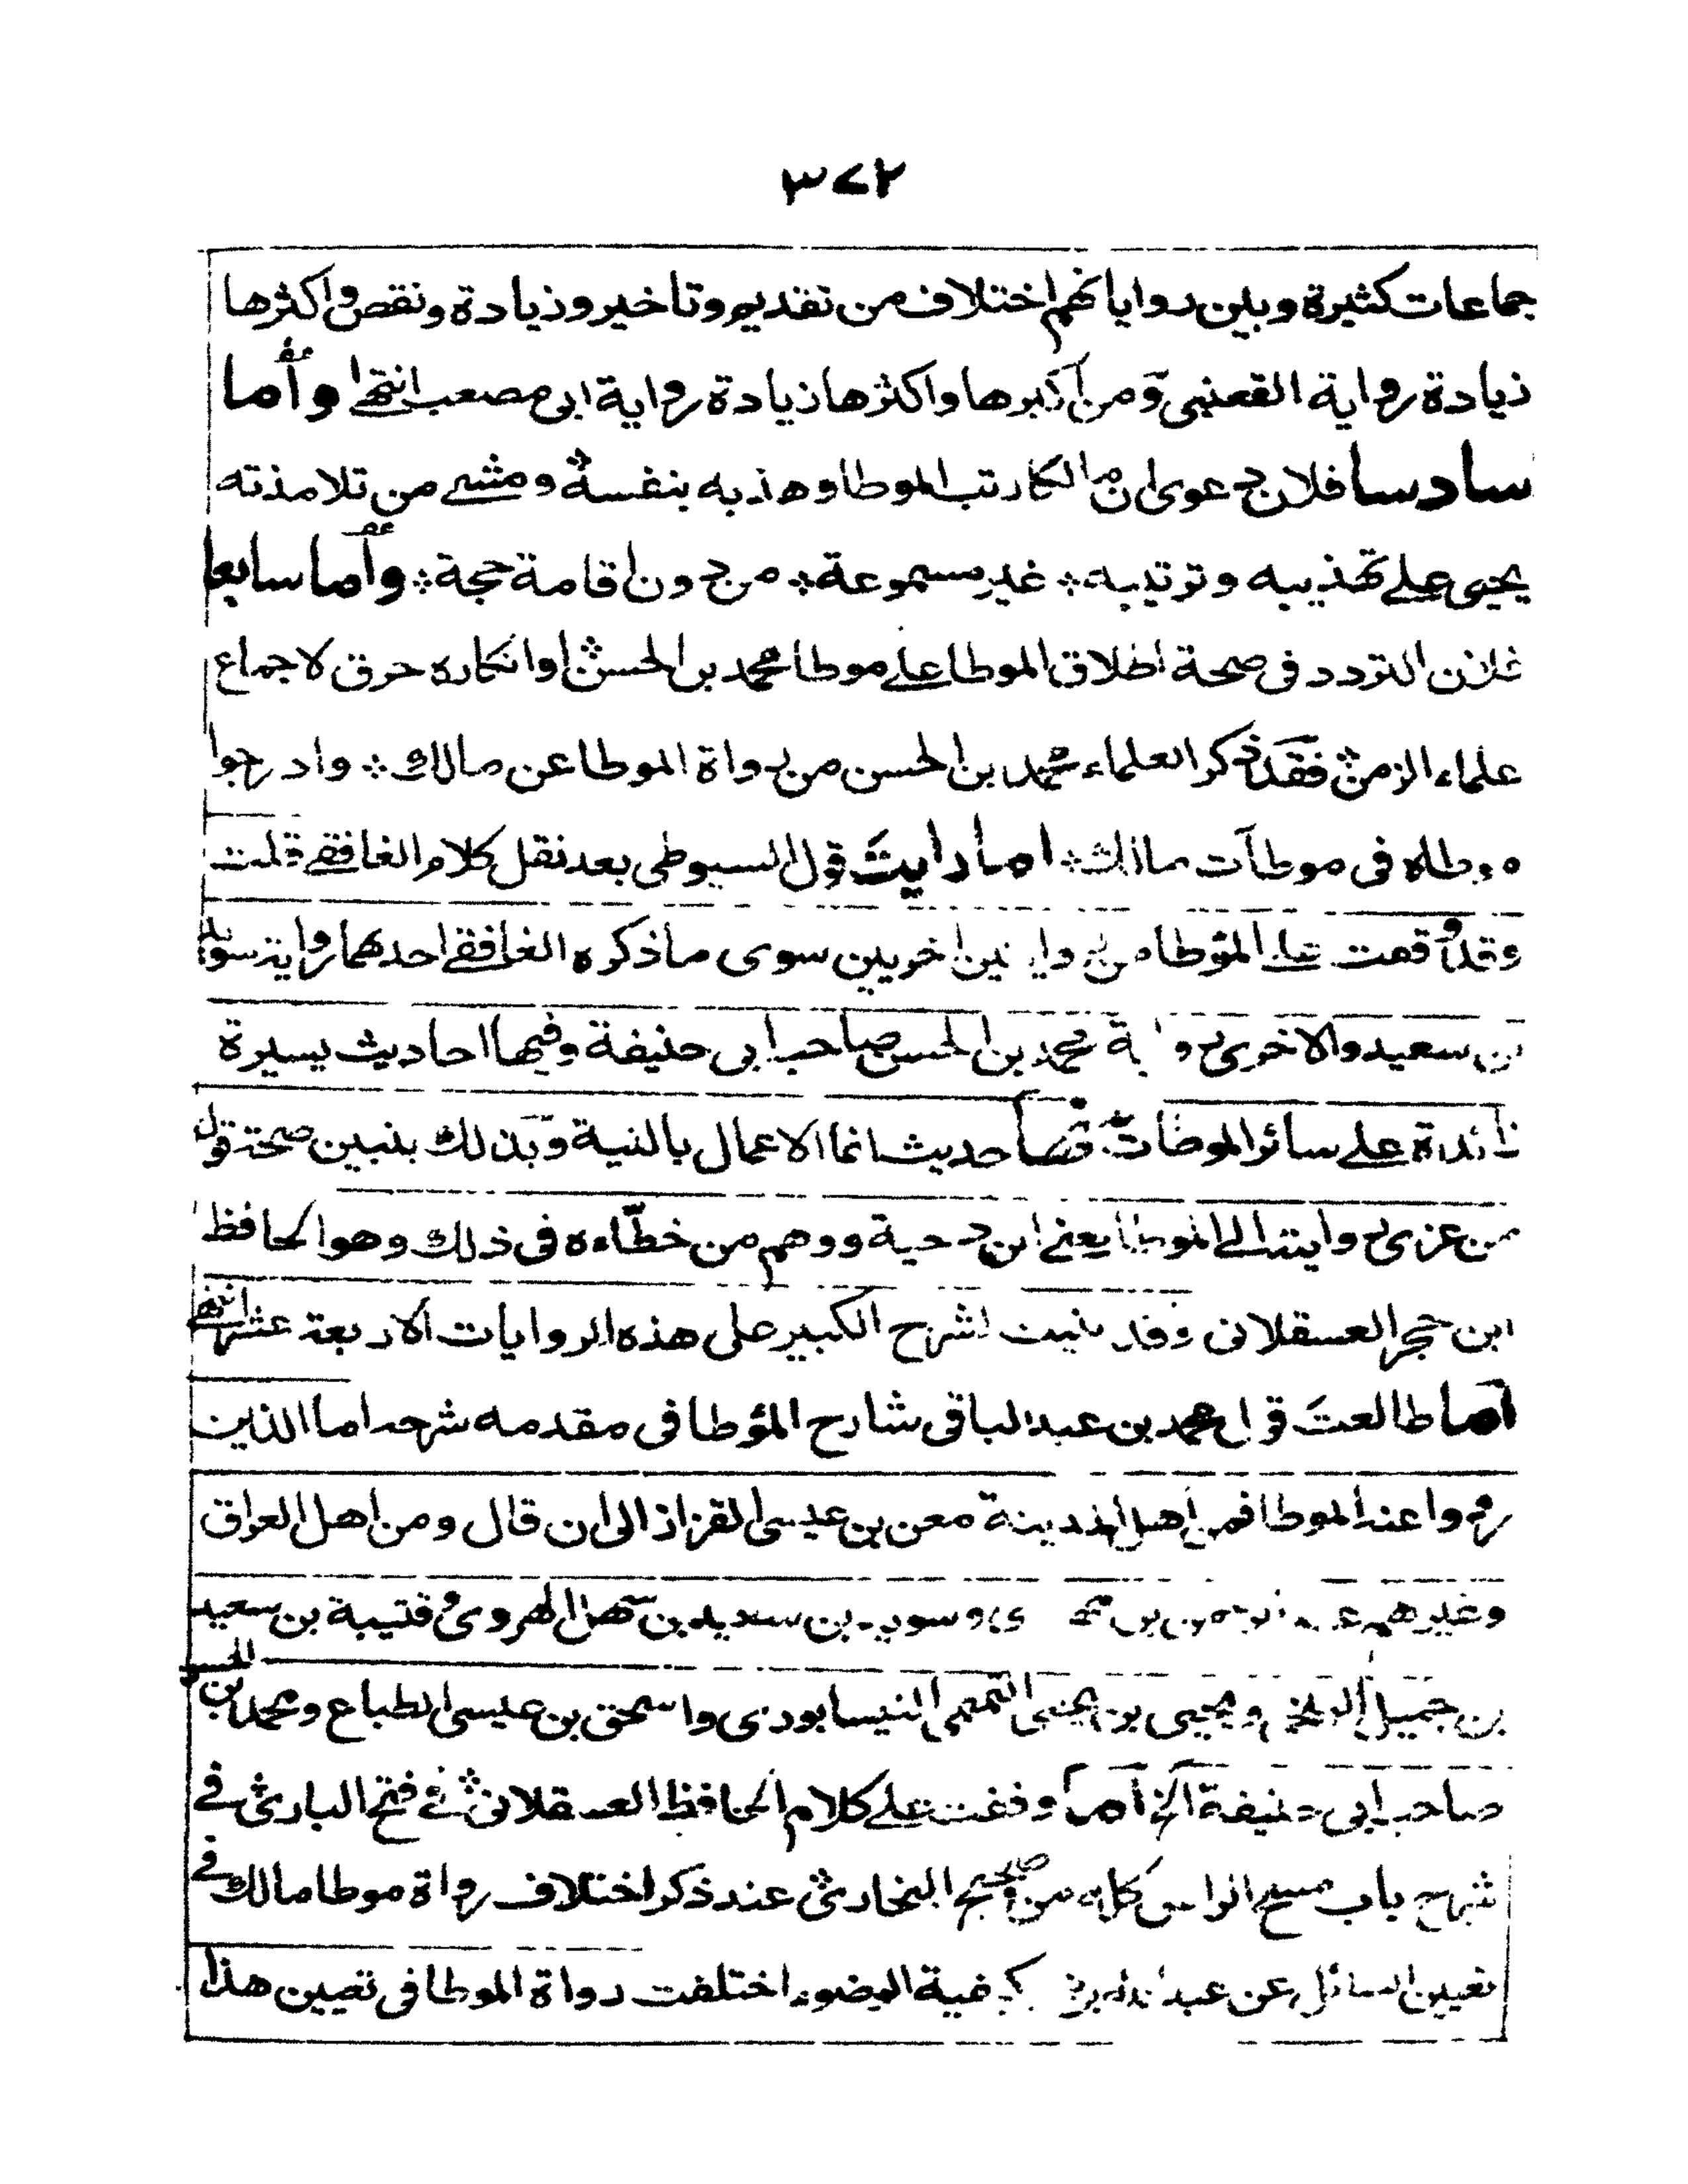 ٣٧٢
جماعات كثيرة وبين رواياتهم اختلاف من تقديم وتاخير وزيادة ونقص واكثرها
زيادة رواية القعنبى ومن اكبرها واكثرها زيادة رواية ابى مصعب انتهے واما
سادسا فلان دعوى ان مالكا رتب الموطا وهذبه بنفسه ومشے من تلامذته
يحيى علے تهذيبه وترتيبه غير مسموعة من دون اقامة حجة واما سابعا
فلان التردد فى صحة اطلاق الموطا علے موطا محمد بن الحسن او انكاره خرق لاجماع
علماء الزمن فقد ذكر العلماء محمد بن الحسن من رواة الموطا عن مالك وادرجوا
موطاه فى موطآت مالك اما رايت قول السيوطى بعد نقل كلام الغافقے قلت
وقد وقعت علے المؤطا من روايتين اخريين سوى ما ذكره الغافقے احدهما رواية سويد
بن سعيد والاخرى رواية محمد بن الحسن صاحب ابى حنيفة وفيها احاديث يسيرة
زائدة علے سائر الموطات منها حديث انما الاعمال بالنية وبذلك بتبين صحة قول
من عزى روايته الے الموطا يعنے ابن دحية ووهم من خطاءه فى ذلك وهو الحافظ
ابن حجر العسقلانى وقد بنيت الشرح الكبير على هذه الروايات الاربعة عشر انتهے
اما طالعت قول محمد بن عبد الباقى شارح المؤطا فى مقدمه شرحه اما الذين
رووا عنه الموطا فمن اهل المدينة معن بن عيسى القزاز الى ان قال ومن اهل العراق
وغيرهم عبد الرحمن بن مهدى وسويد بن سعيد بن سهل الهروى وقتيبة بن سعيد
بن جميل البلخى ويحيى بن يحيى التميمى النيسابورى واسحق بن عيسى الطباع ومحمد بن الحسن
صاحب ابى حنيفة الخ اما وقفت علے كلام الحافظ العسقلانى فے فتح البارى فے
شرح باب مسح الراس كله من صحيح البخارى عند ذكر اختلاف رواة موطا مالك فے
تعيين السائل عن عبد الله بن كيفية الوضوء اختلفت رواة الموطا فى تعيين هذا